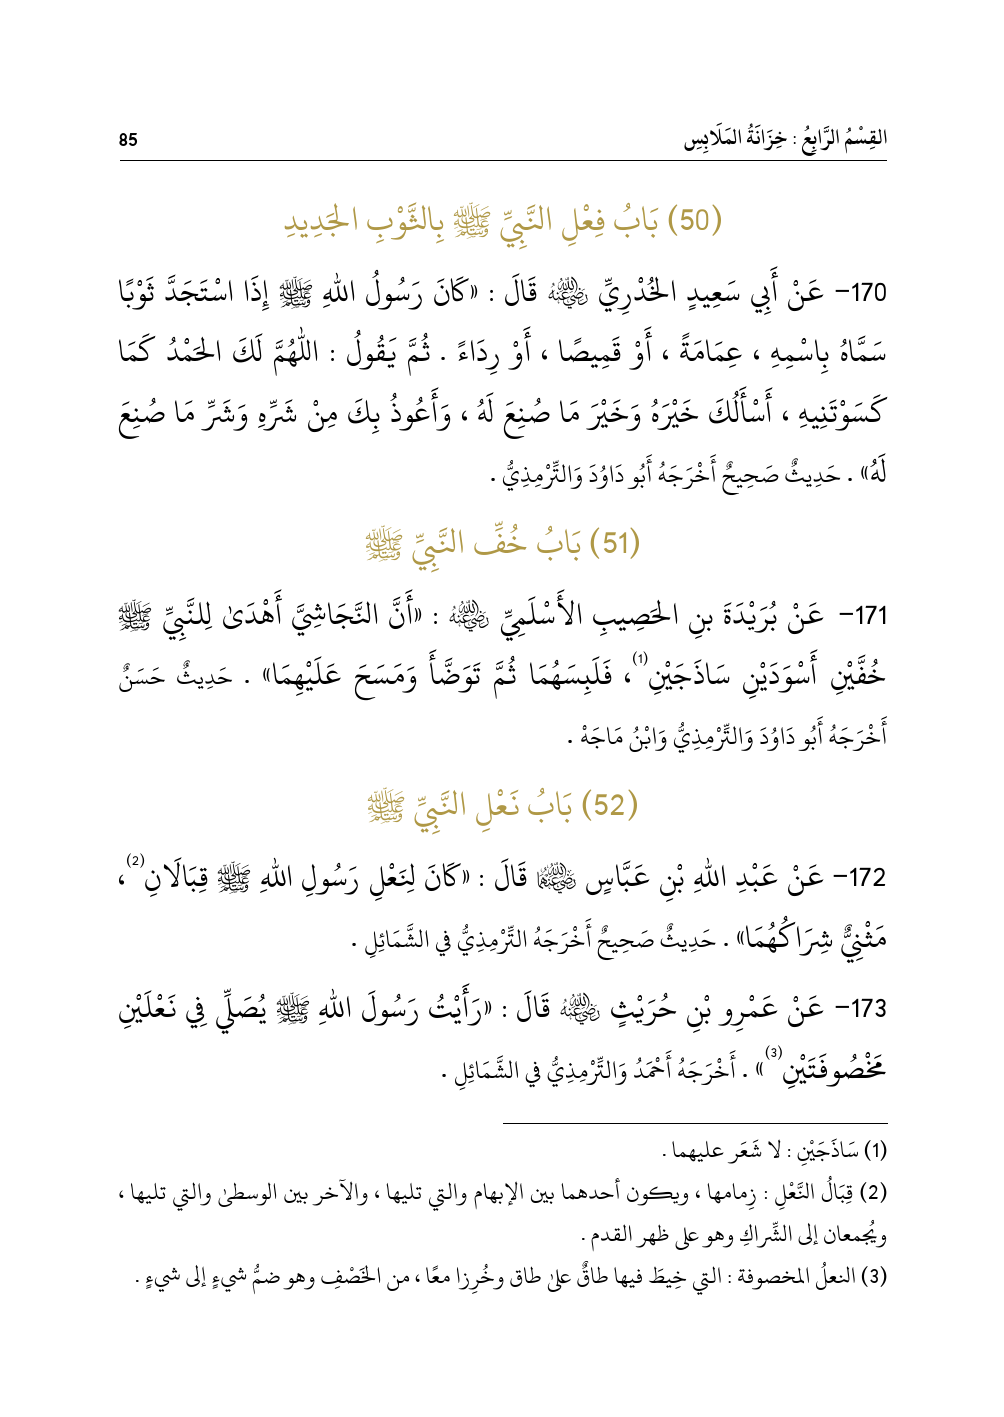 القِسْمُ الرَّابِعُ : خِزَانَةُ المَلَابِسِ 85
(50) بَابُ فِعْلِ النَّبِيِّ ﷺ بِالثَّوْبِ الجَدِيدِ
170- عَنْ أَبِي سَعِيدٍ الخُدْرِيِّ رضي الله عنه قَالَ : «كَانَ رَسُولُ اللهِ ﷺ إِذَا اسْتَجَدَّ ثَوْبًا
سَمَّاهُ بِاسْمِهِ ، عِمَامَةً ، أَوْ قَمِيصًا ، أَوْ رِدَاءً . ثُمَّ يَقُولُ : اللَّهُمَّ لَكَ الحَمْدُ كَمَا
كَسَوْتَنِيهِ ، أَسْأَلُكَ خَيْرَهُ وَخَيْرَ مَا صُنِعَ لَهُ ، وَأَعُوذُ بِكَ مِنْ شَرِّهِ وَشَرِّ مَا صُنِعَ
لَهُ» . حَدِيثٌ صَحِيحٌ أَخْرَجَهُ أَبُو دَاوُدَ وَالتِّرْمِذِيُّ .
(51) بَابُ خُفِّ النَّبِيِّ ﷺ
171- عَنْ بُرَيْدَةَ بنِ الحَصِيبِ الأَسْلَمِيِّ رضي الله عنه : «أَنَّ النَّجَاشِيَّ أَهْدَىٰ لِلنَّبِيِّ ﷺ
خُفَّيْنِ أَسْوَدَيْنِ سَاذَجَيْنِ(1)، فَلَبِسَهُمَا ثُمَّ تَوَضَّأَ وَمَسَحَ عَلَيْهِمَا» . حَدِيثٌ حَسَنٌ
أَخْرَجَهُ أَبُو دَاوُدَ وَالتِّرْمِذِيُّ وَابْنُ مَاجَهْ .
(52) بَابُ نَعْلِ النَّبِيِّ ﷺ
172- عَنْ عَبْدِ اللهِ بْنِ عَبَّاسٍ رضي الله عنهما قَالَ : «كَانَ لِنَعْلِ رَسُولِ اللهِ ﷺ قِبَالَانِ(2)،
مَثْنِيٌّ شِرَاكُهُمَا» . حَدِيثٌ صَحِيحٌ أَخْرَجَهُ التِّرْمِذِيُّ في الشَّمَائِلِ .
173- عَنْ عَمْرِو بْنِ حُرَيْثٍ رضي الله عنه قَالَ : «رَأَيْتُ رَسُولَ اللهِ ﷺ يُصَلِّي فِي نَعْلَيْنِ
مَخْصُوفَتَيْنِ(3)» . أَخْرَجَهُ أَحْمَدُ وَالتِّرْمِذِيُّ في الشَّمَائِلِ .
(1) سَاذَجَيْنِ : لا شَعَر عليهما .
(2) قِبَالُ النَّعْلِ : زِمامها ، ويكون أحدهما بين الإبهام والتي تليها ، والآخر بين الوسطىٰ والتي تليها ،
ويُجمعان إلى الشِّراكِ وهو على ظهر القدم .
(3) النعلُ المخصوفة : التي خِيطَ فيها طاقٌ علىٰ طاق وخُرِزا معًا ، من الخَصْفِ وهو ضمُّ شيءٍ إلى شيءٍ .